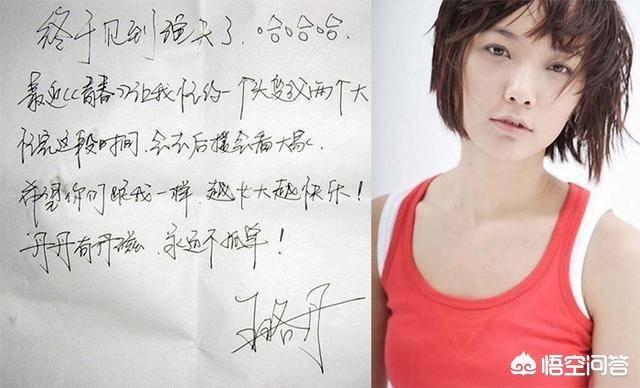 终于见到天了.哈哈哈.
最近《青春》让我忙的一个头变成两个大
忙完这段时间,会去后援会看大家.
希望你们跟我一样,越长大越快乐!
丹丹有丹磁,永远不孤单!
王珞丹
悟空问答